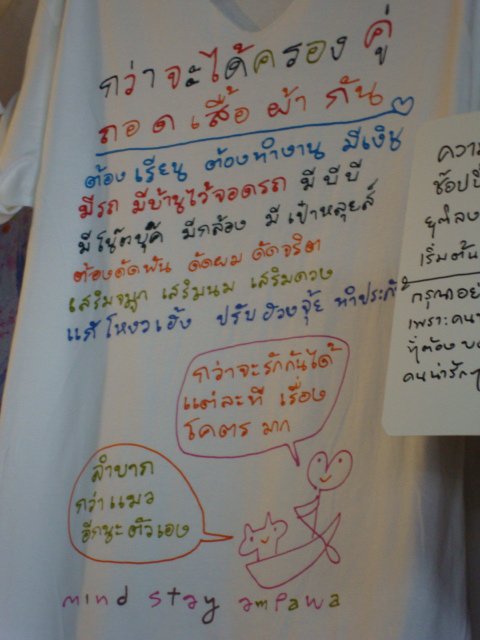 กว่าจะได้ครองคู่
ถอดเสื้อผ้ากัน
ต้องเรียน ต้องทำงาน มีเงิน
มีรถ มีบ้านไว้จอดรถ มีบีบี
มีโน๊ตบุ๊ค มีกล้อง มีเป๋าหลุยส์
ต้องดัดฟัน ดัดผม ดัดจริต
เสริมจมูก เสริมนม เสริมดวง
แก้โหงวเฮ้ง ปรับฮวงจุ้ย ทำประกัน
กว่าจะรักกันได้
แต่ละที เรื่อง
โคตรมาก
ลำบาก
กว่าแมว
อีกนะตัวเอง
mind stay ampawa
ความ
ช๊อปปิ้
ยุคลง
เริ่มต้น
กรุณาอย่
เพราะคน
ที่ต้อง
คนน่ารัก